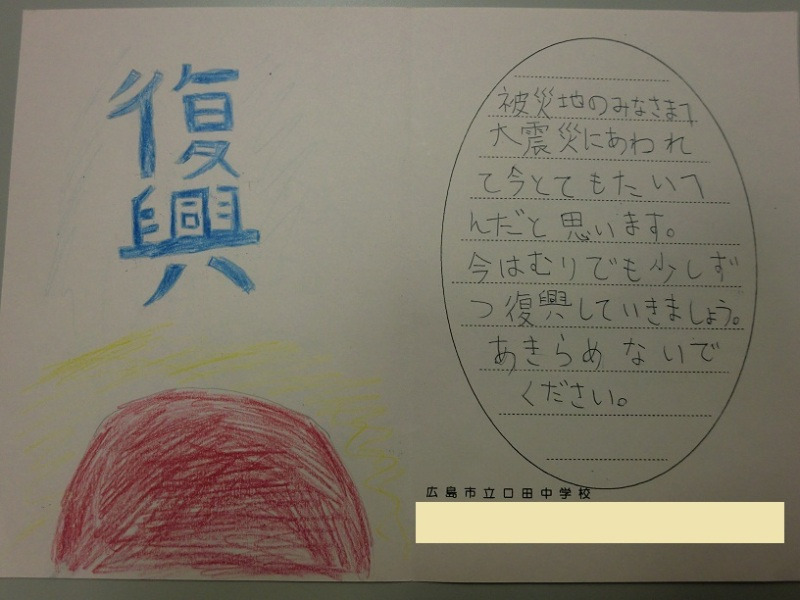 復
興
被災地のみなさまへ
大震災にあわれ
て今とてもたいへ
んだと思います。
今はむりでも少しず
つ復興していきましょう。
あきらめないで
ください。
広島市立口田中学校